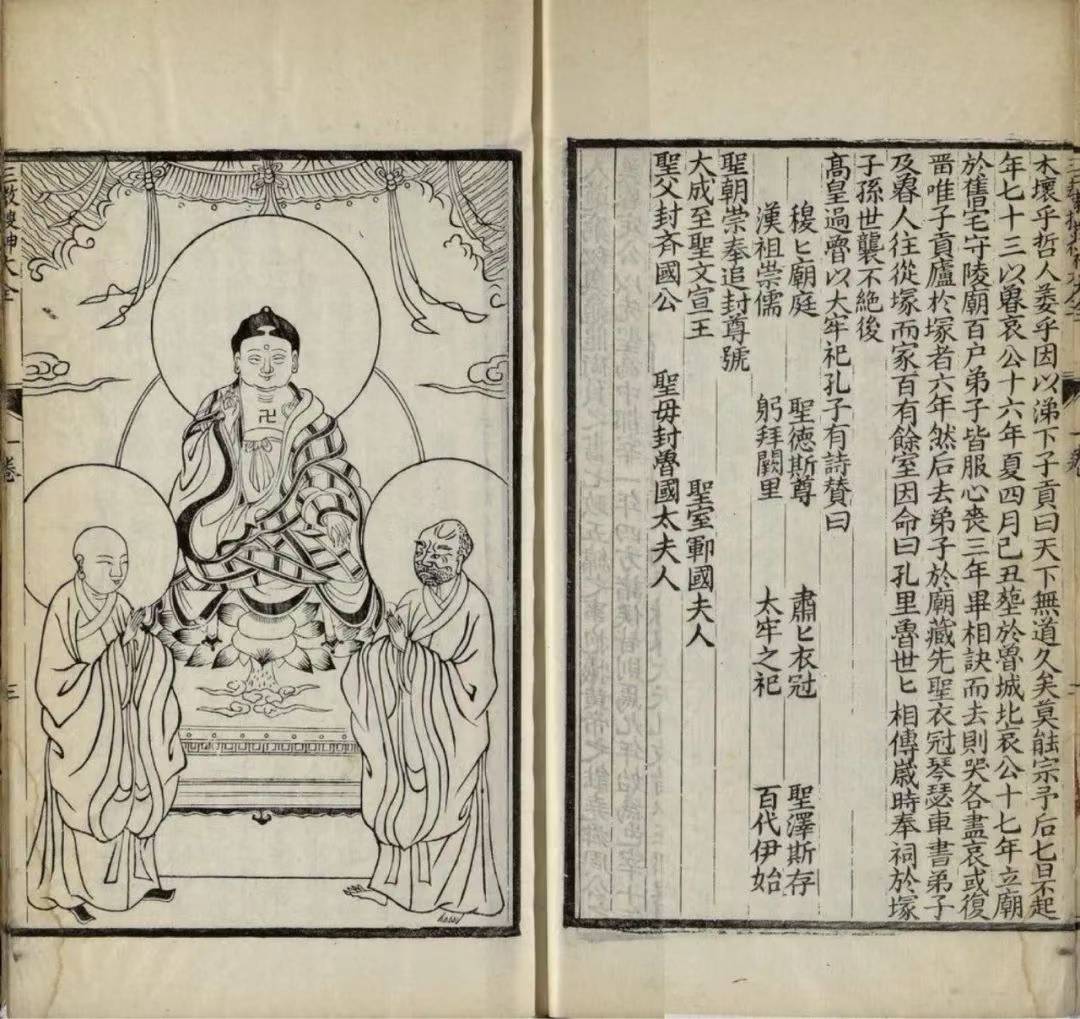 木壞乎哲人萎乎因以涕下子貢曰天下無道久矣莫能宗予后七日不起
年七十三以魯哀公十六年夏四月己丑塟於魯城北哀公十七年立廟
於舊宅守陵廟百户弟子皆服心喪三年畢相訣而去則哭各盡哀或復
畱唯子貢廬於塚者六年然后去弟子於廟藏先聖衣冠琴瑟車書弟子
及魯人往從塚而家百有餘室因命曰孔里魯世匕相傳嵗時奉祠於塚
子孫世襲不絶後
高皇過魯以太牢祀孔子有詩賛曰
穆匕廟庭 聖德斯尊 肅匕衣冠 聖澤斯存
漢祖崇儒 躬拜闕里 太牢之祀 百代伊始
聖朝崇奉追封尊號
大成至聖文宣王 聖室鄆國夫人
聖父封齐國公 聖母封魯國太夫人
卍
三教搜神大全 一卷 三